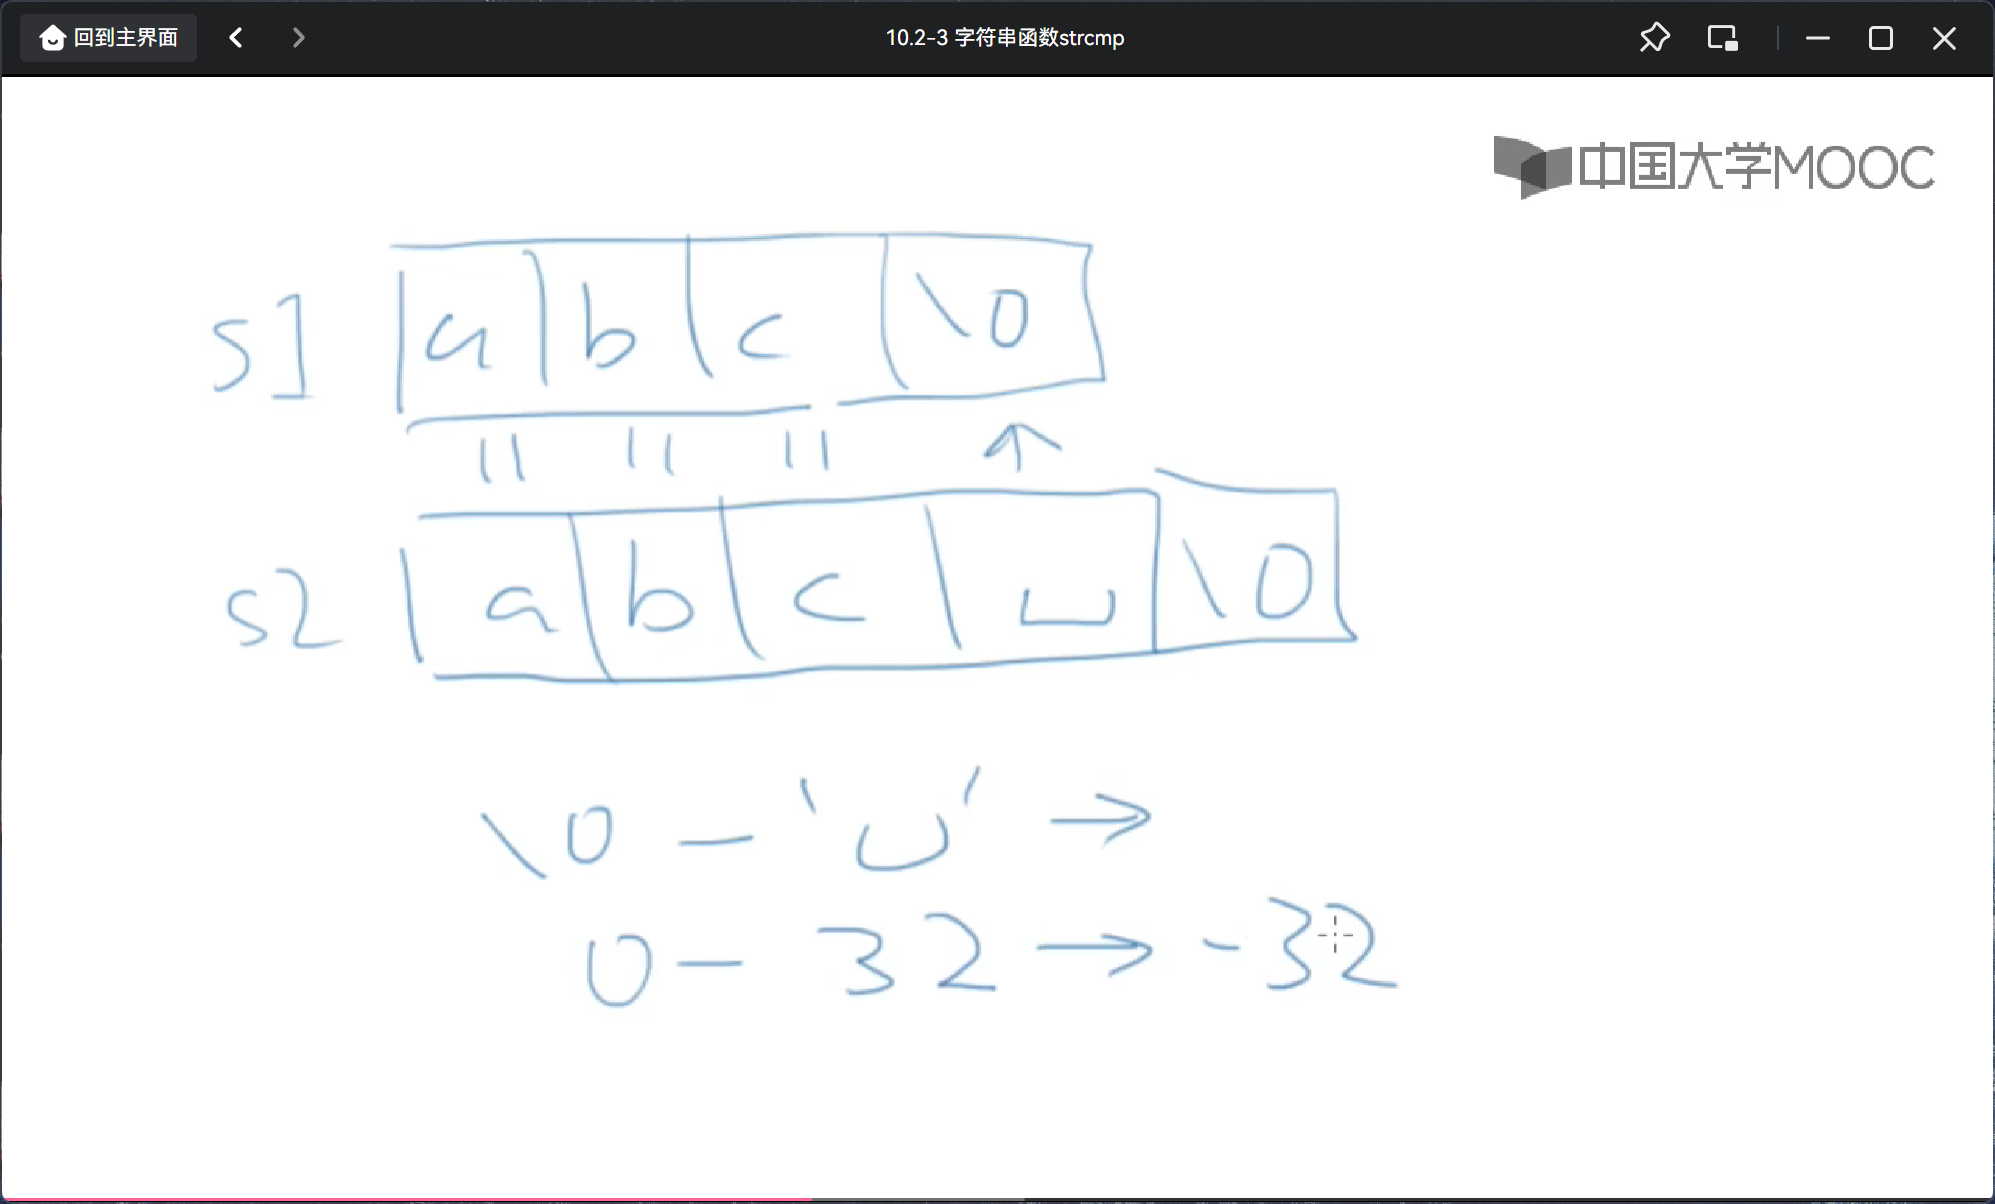 回到主界面
10.2-3 字符串函数strcmp
中国大学MOOC
s1 a b c \0
= = = ↑
s2 a b c ␣ \0
\0 — '␣' →
0 — 32 → -32